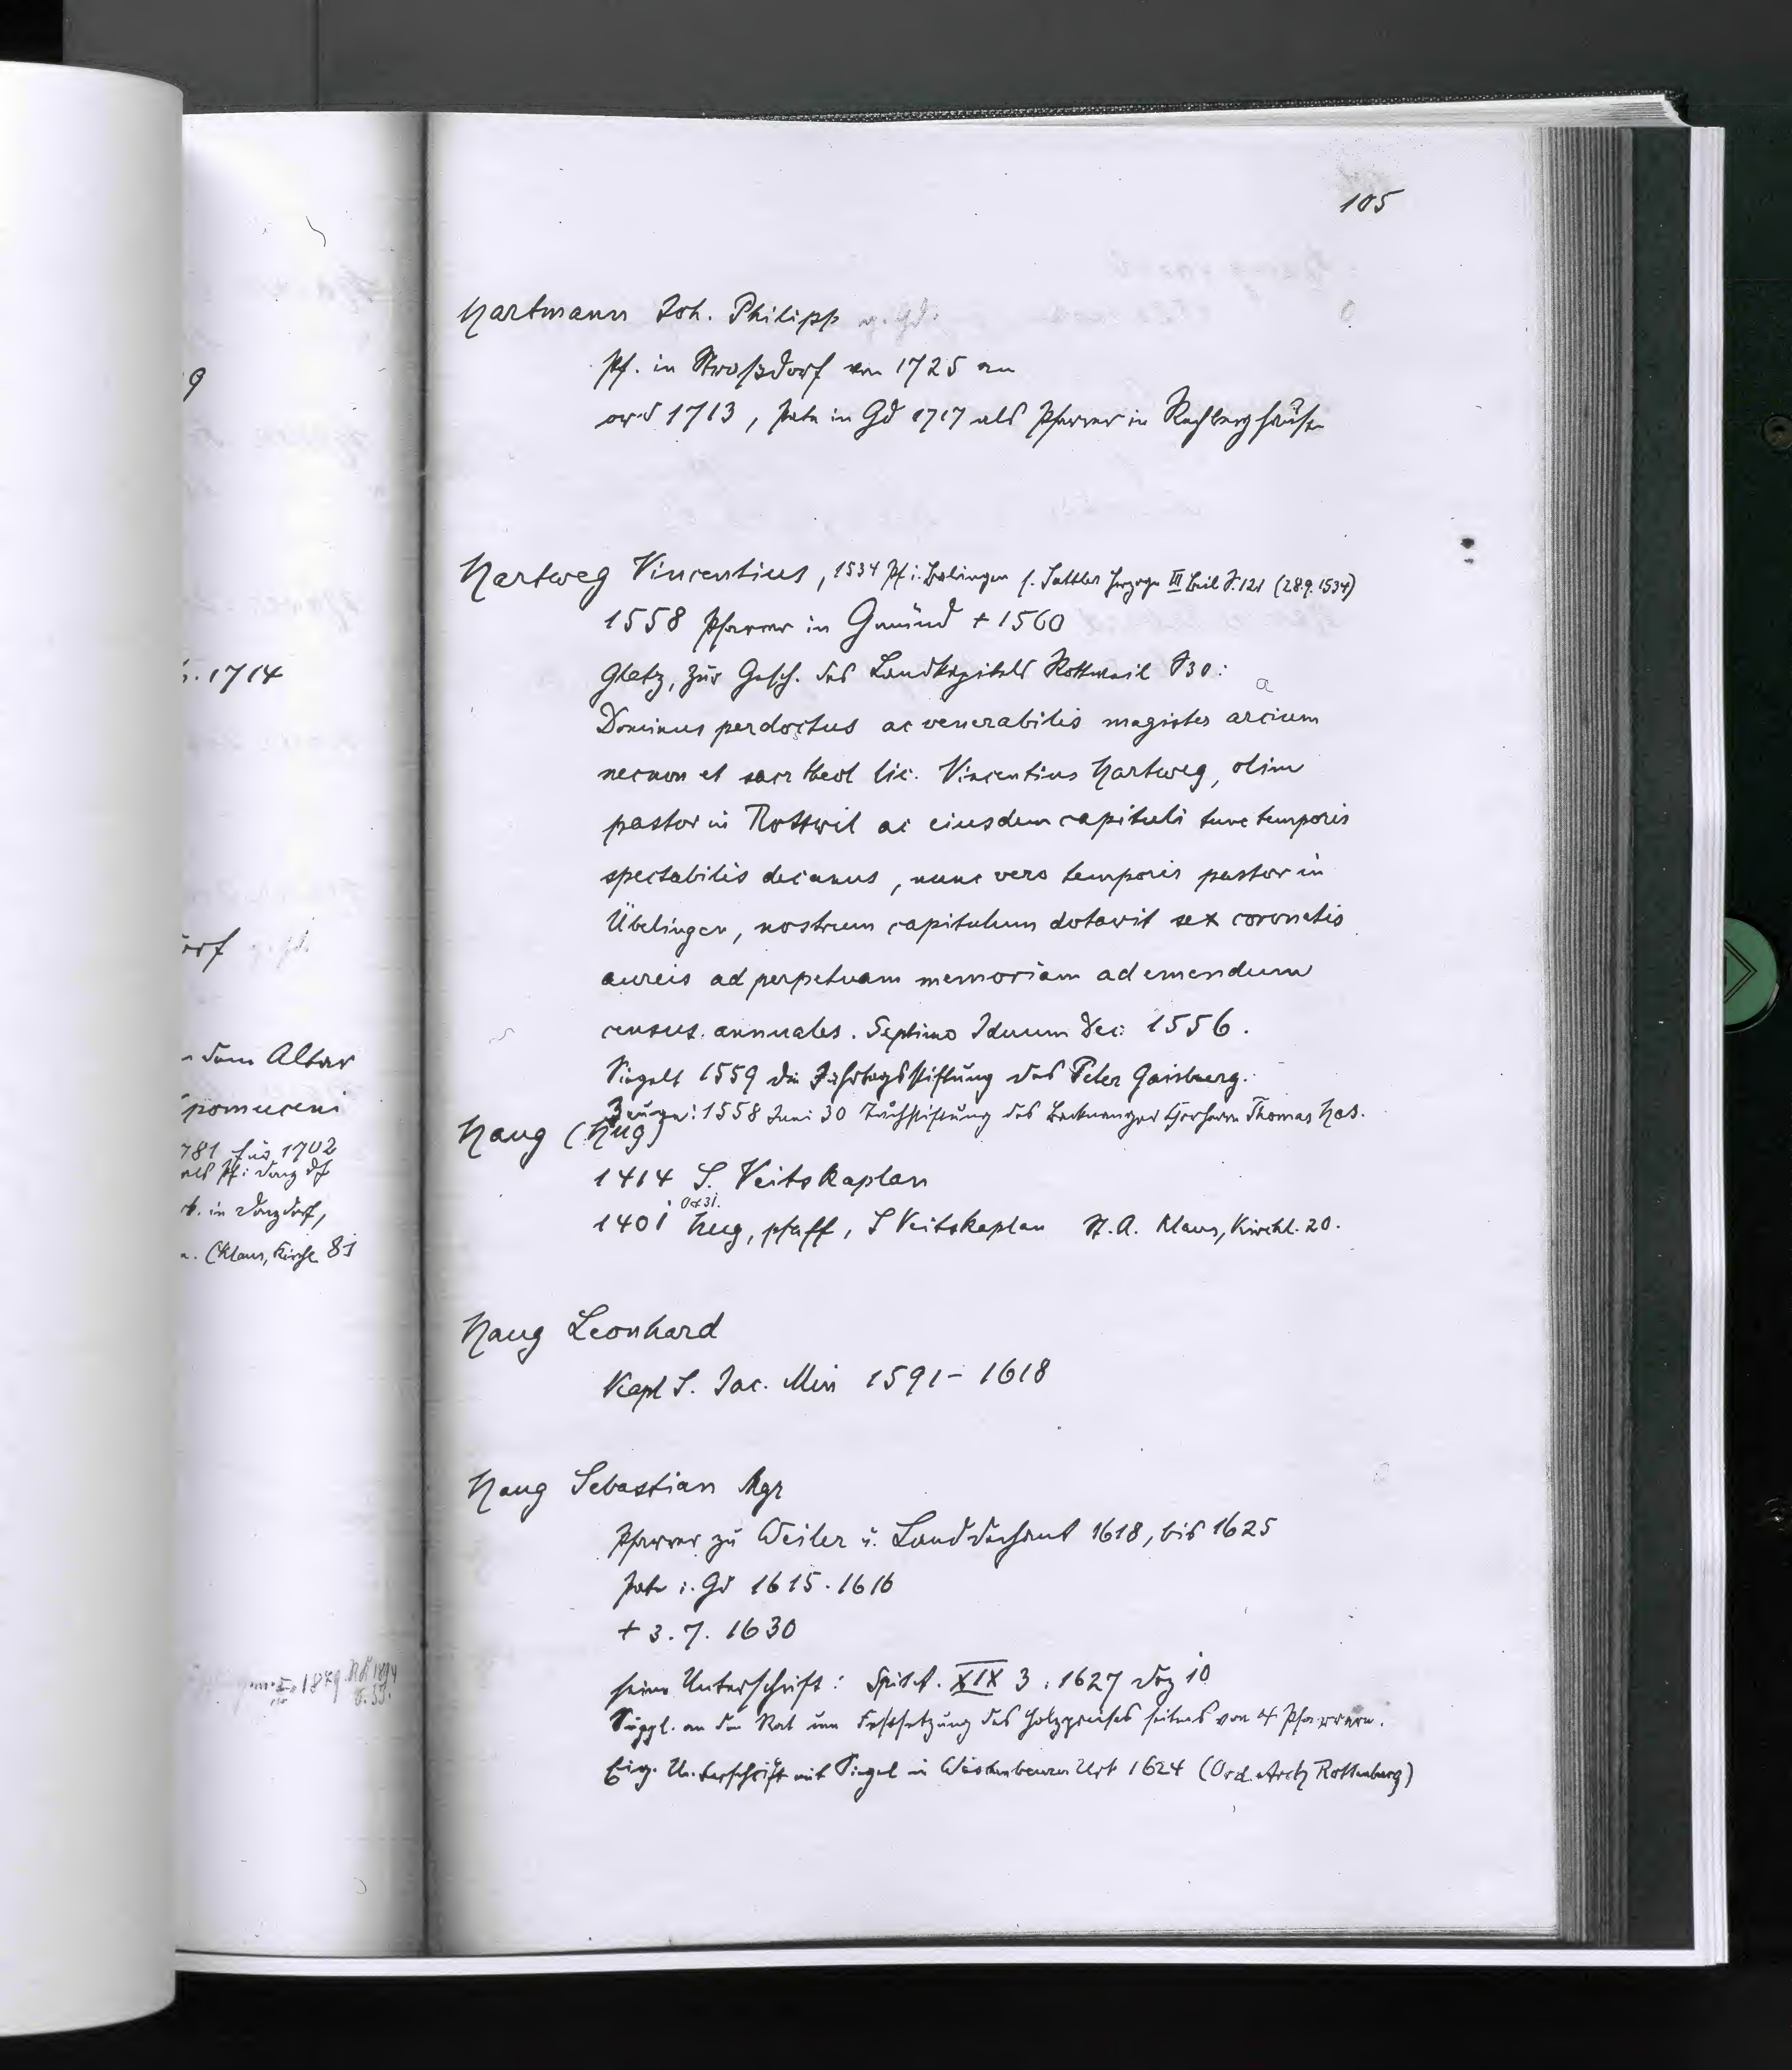 105
Hartmann Joh. Philipp v. Gd.
Pf. in Straßdorf von 1725 an
ord 1713, Pate in Gd 1717 als Pfarrer in Rechberghausen
Hartweg Vincentius, 1534 Pf. i. Balingen s. Sattler Herzoge III Beil S. 121 (28.9.1534)
1558 Pfarrer in Gmünd + 1560
Glatz, zur Gesch. des Landkapitels Rottweil S 30:
Dominus perdoctus ac venerabilis magister arcium
necnon et sacr theol lic. Vincentius Hartweg, olim
pastor in Rottwil ac eiusdem capituli tunc temporis
spectabilis decanus, nunc vero temporis pastor in
Übelingen, nostrum capitulum dotavit sex coronatis
aureis ad perpetuam memoriam ad emendum
census annuales. Septimo Iduum Dec. 1556.
Siegelt 1559 die Jahrtagsstiftung des Peter Gaisberg.
Zeuge: 1558 Juni 30 Tuchstiftung des Backnanger Chorherrn Thomas Has.
Haug (Hug)
1414 S. Veitskaplan
Oct 31.
1401 Hug, pfaff, S Veitskaplan St. A. Klaus, Kirchl. 20.
Haug Leonhard
Kapl S. Jac. Min 1591 - 1618
Haug Sebastian Mgr
Pfarrer zu Weiler u. Landdechant 1618, bis 1625
Pate i. Gd 1615. 1616
+ 3. 7. 1630
seine Unterschrift: Spit A. XIX 3. 1627 Dez 10
Suppl. an den Rat um Festsetzung des Holzpreises seitens von 4 Pfarrern.
Eig. Unterschrift mit Siegel in Urk 1624 (Ord. Arch Rottenburg)
9
1714
orf
dem Altar
pomuceni
781 bis 1702
als Pf. i. Donzdf
in Donzdorf,
(Klaus, Kirche 81
1879